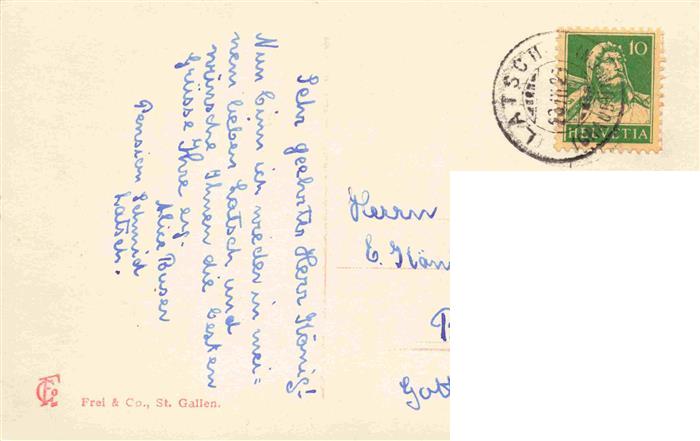 Sehr geehrter Herr König!
Nun binn ich wieder in mei=
nem lieben Latsch und
wünsche Ihnen die besten
Grüsse Ihre erg.
Alice Buser
Pension Schmid
Latsch.
Herrn
E. Kön
Gott
LATSCH
10
HELVETIA
Frei & Co., St. Gallen.